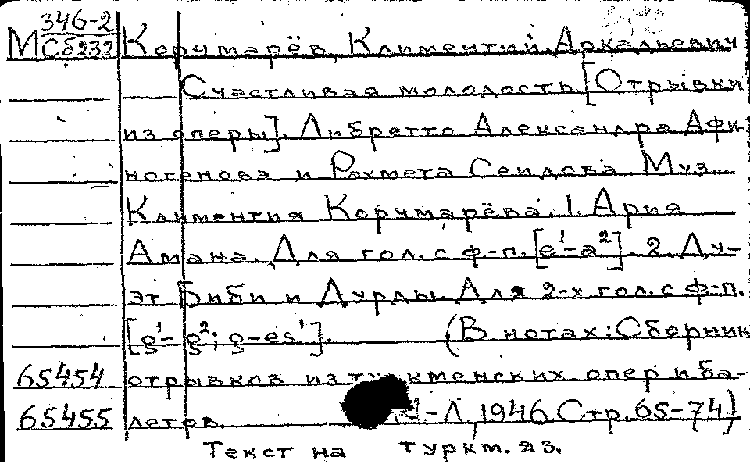 346-2
М Сб232 Корчмарёв, Климентий Аркадьевич
Счастливая молодость [Отрывки
из оперы]. Либретто Александра Афи-
ногенова и Рахмета Сеидова Муз.
Климентия Корчмарёва. 1. Ария
Амана. Для гол. с ф-п. [e¹-a²]. 2. Ду-
эт Биби и Дурды. Для 2-х гол. с ф-п.
[g¹-g²; g-es¹]. (В нотах: Сборник
65454 отрывков из туркменских опер и ба-
65455 летов. -Л, 1946 Стр. 65-74)
Текст на туркм. яз.